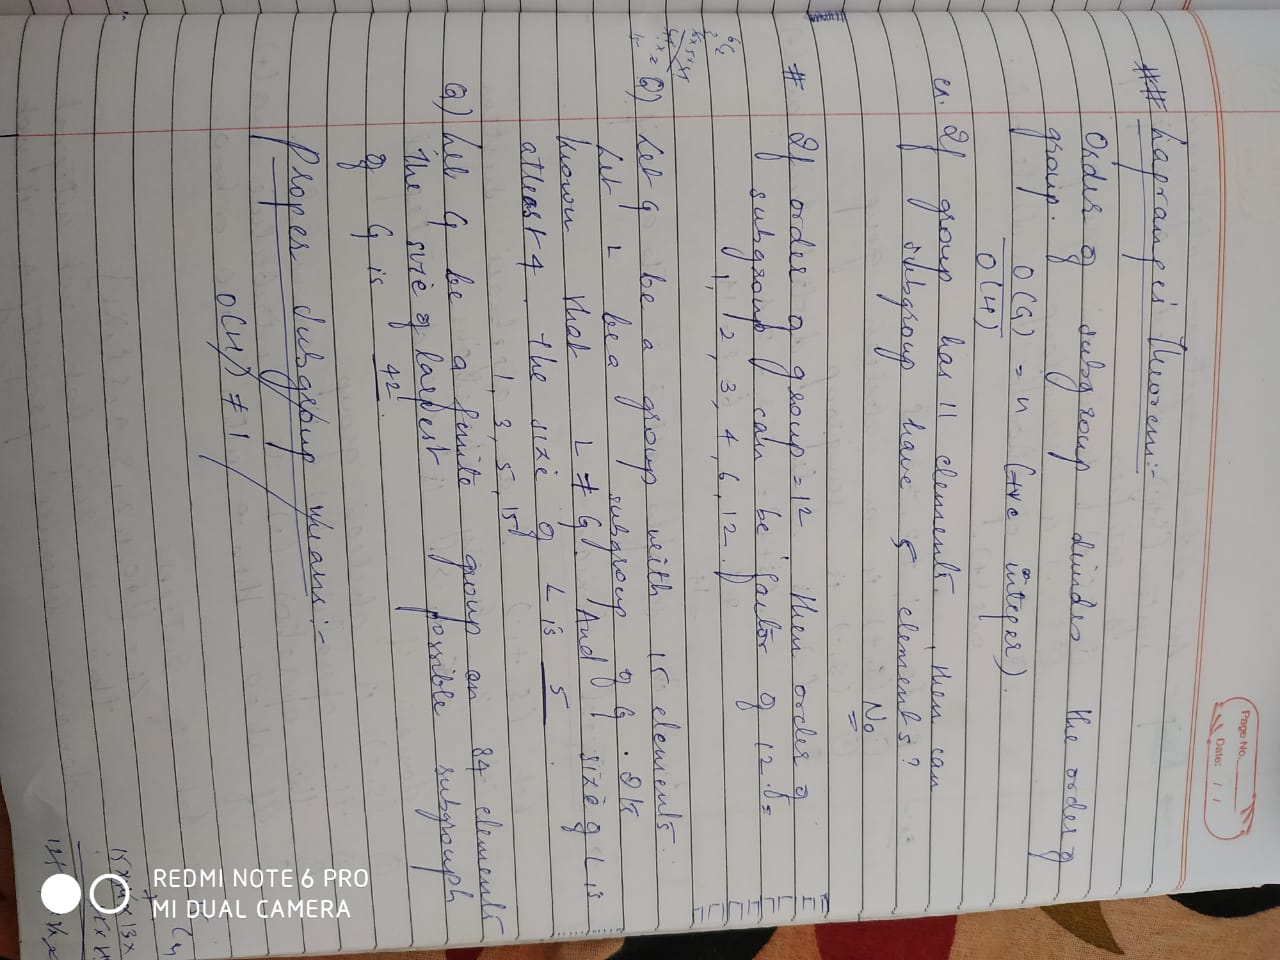 Page No.
Date: / /
## Lagrange's Theorem:-
Order of subgroup divides the order of
group.
O(G) = n (+ve integer).
O(H)
ex. If group has 11 elements, then can
subgroup have 5 elements?
No
# If order of group = 12, then order of
subgroup can be factor of 12. =
1, 2, 3, 4, 6, 12.
6C2
15
Q) Let G be a group with 15 elements.
Let L be a subgroup of G. It
known that L ≠ G. And size of L is
atleast 4. The size of L is 5.
1, 3, 5, 15
Q) Let G be a finite group on 84 elements
The size of largest possible subgroup
of G is 42.
Proper Subgroup Means:-
O(H) ≠ 1
REDMI NOTE 6 PRO
MI DUAL CAMERA